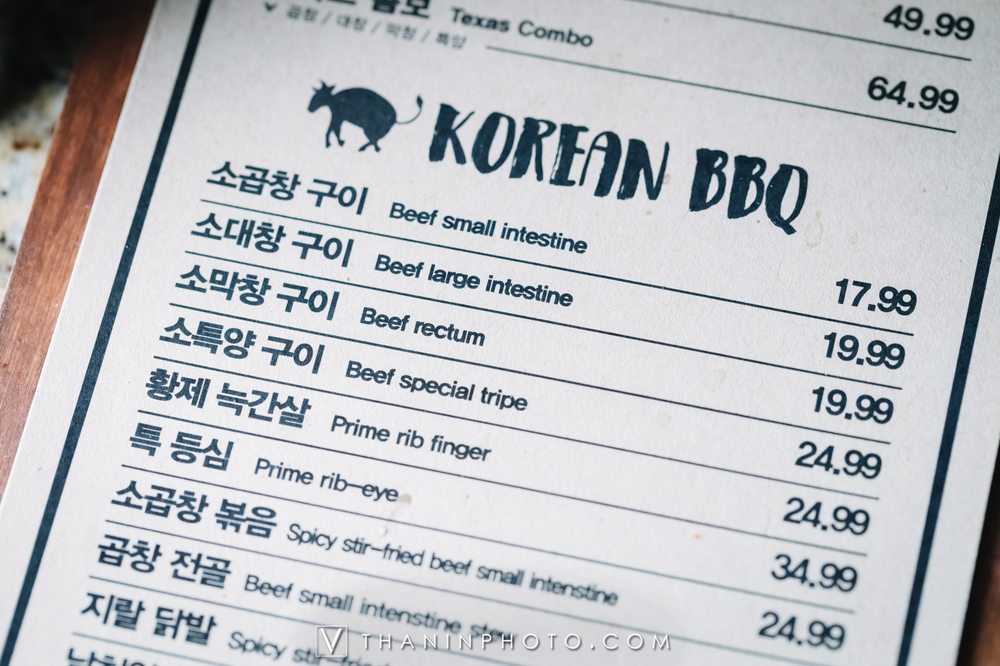 콤보 Texas Combo 49.99
곱창 / 대창 / 막창 / 특양 64.99
KOREAN BBQ
소곱창 구이 Beef small intestine 17.99
소대창 구이 Beef large intestine 19.99
소막창 구이 Beef rectum 19.99
소특양 구이 Beef special tripe 24.99
황제 늑간살 Prime rib finger 24.99
특 등심 Prime rib-eye 34.99
소곱창 볶음 Spicy stir-fried beef small intenstine 24.99
곱창 전골 Beef small intenstine
지랄 닭발 Spicy
V THANINPHOTO.COM